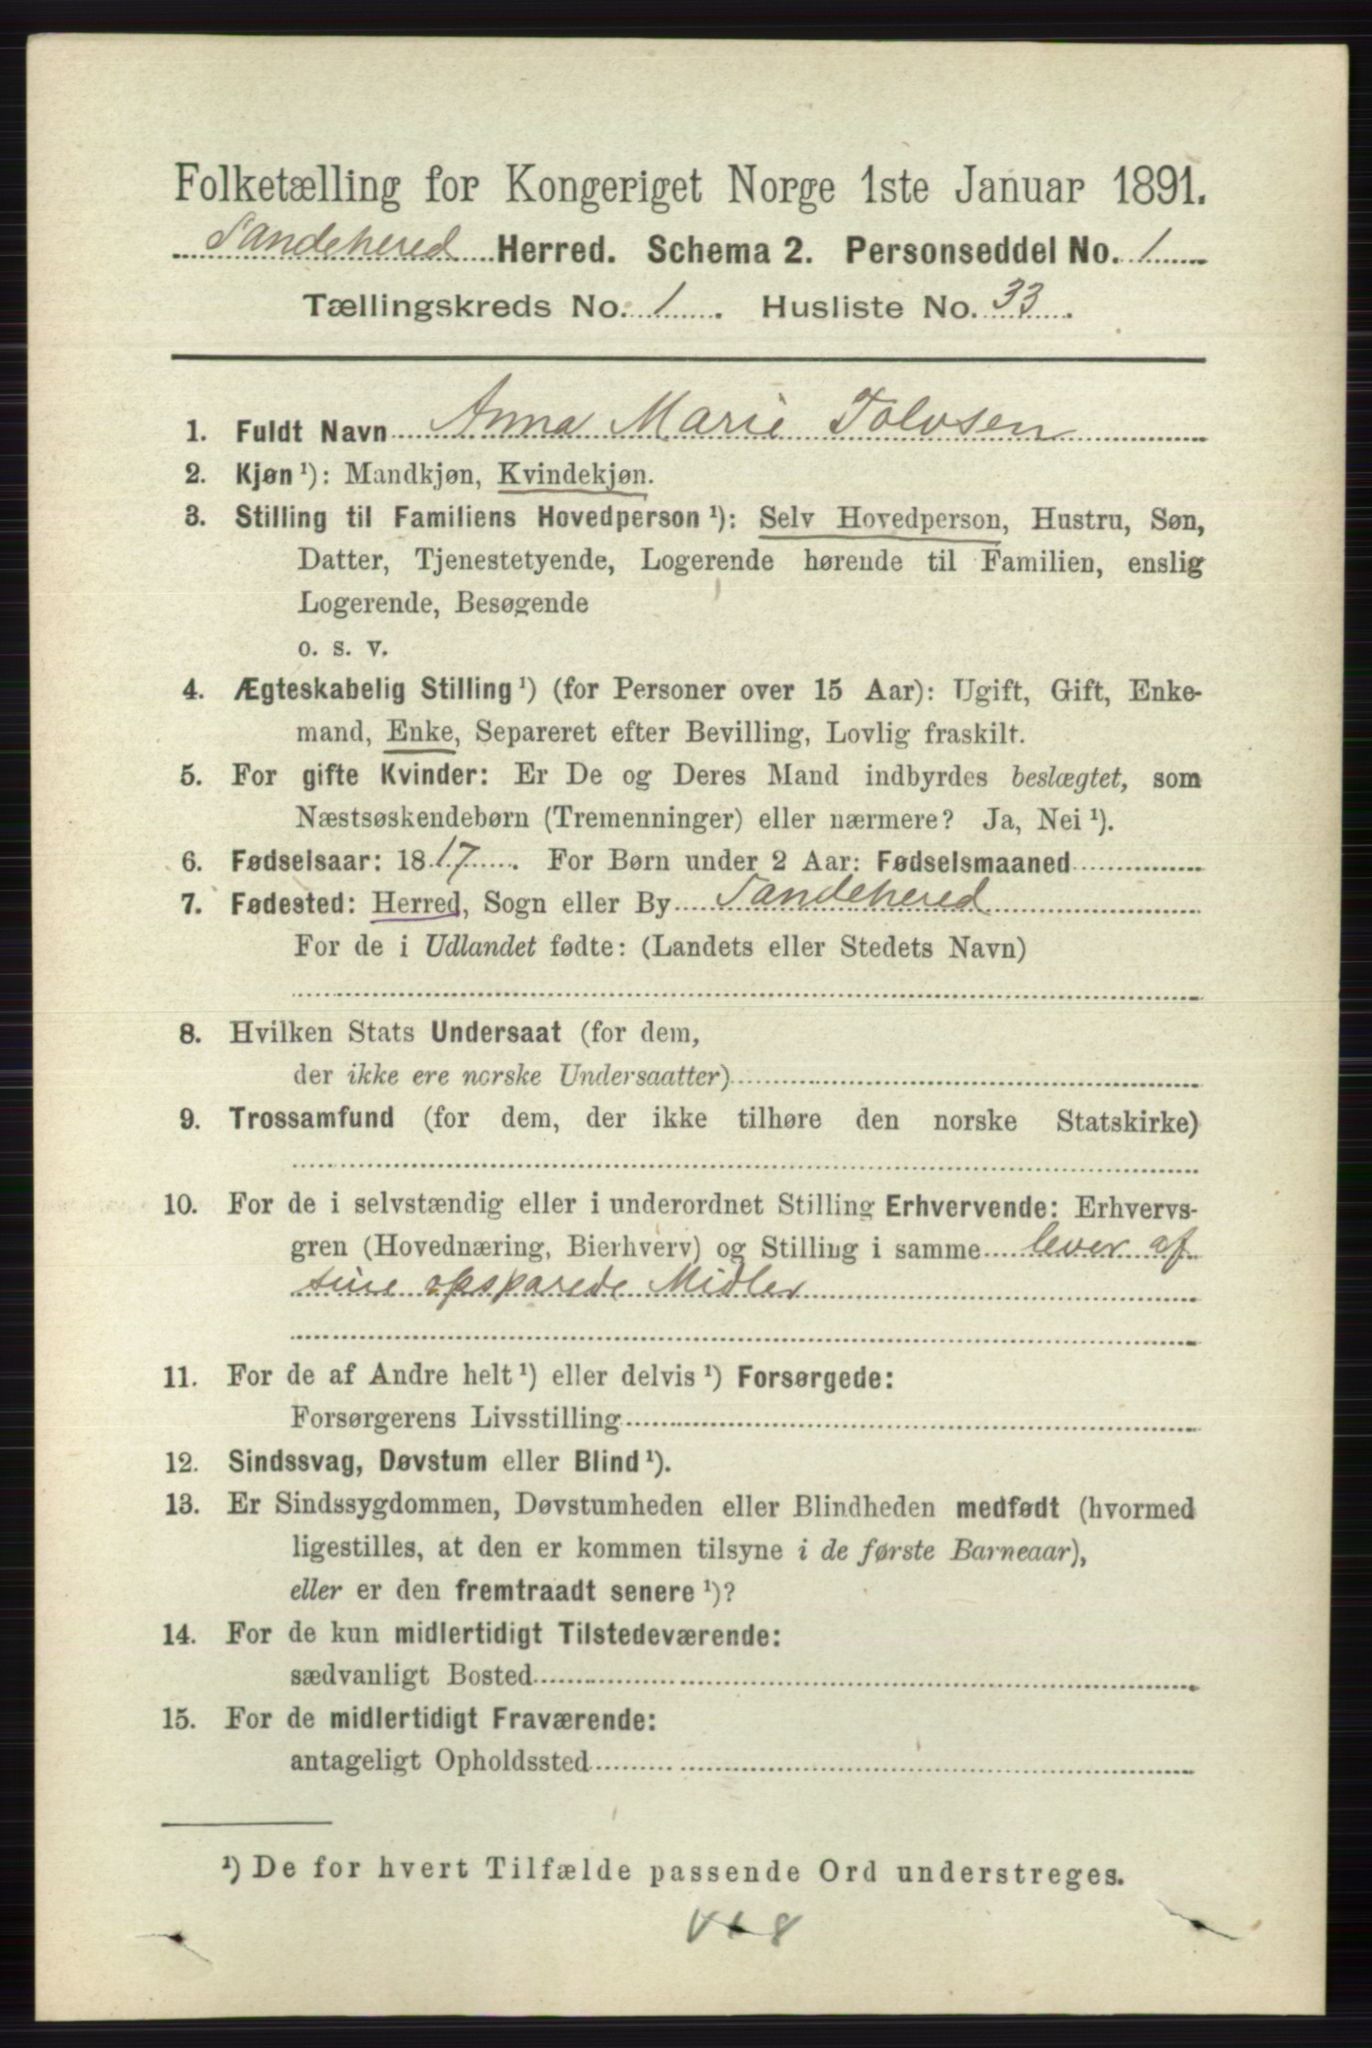 Folketælling for Kongeriget Norge 1ste Januar 1891.
Sandehered Herred. Schema 2. Personseddel No. 1
Tællingskreds No. 1. Husliste No. 33.
1. Fuldt Navn Anna Marie Tolvsen
2. Kjøn ¹): Mandkjøn, Kvindekjøn.
3. Stilling til Familiens Hovedperson ¹): Selv Hovedperson, Hustru, Søn,
Datter, Tjenestetyende, Logerende hørende til Familien, enslig
Logerende, Besøgende
o. s. v.
4. Ægteskabelig Stilling ¹) (for Personer over 15 Aar): Ugift, Gift, Enke-
mand, Enke, Separeret efter Bevilling, Lovlig fraskilt.
5. For gifte Kvinder: Er De og Deres Mand indbyrdes beslægtet, som
Næstsøskendebørn (Tremenninger) eller nærmere? Ja, Nei ¹).
6. Fødselsaar: 1817. For Børn under 2 Aar: Fødselsmaaned
7. Fødested: Herred, Sogn eller By Sandehered
For de i Udlandet fødte: (Landets eller Stedets Navn)
8. Hvilken Stats Undersaat (for dem,
der ikke ere norske Undersaatter)
9. Trossamfund (for dem, der ikke tilhøre den norske Statskirke)
10. For de i selvstændig eller i underordnet Stilling Erhvervende: Erhvervs-
gren (Hovednæring, Bierhverv) og Stilling i samme lever af
sine opsparede Midler
11. For de af Andre helt ¹) eller delvis ¹) Forsørgede:
Forsørgerens Livsstilling
12. Sindssvag, Døvstum eller Blind ¹).
13. Er Sindssygdommen, Døvstumheden eller Blindheden medfødt (hvormed
ligestilles, at den er kommen tilsyne i de første Barneaar),
eller er den fremtraadt senere ¹)?
14. For de kun midlertidigt Tilstedeværende:
sædvanligt Bosted
15. For de midlertidigt Fraværende:
antageligt Opholdssted
¹) De for hvert Tilfælde passende Ord understreges.